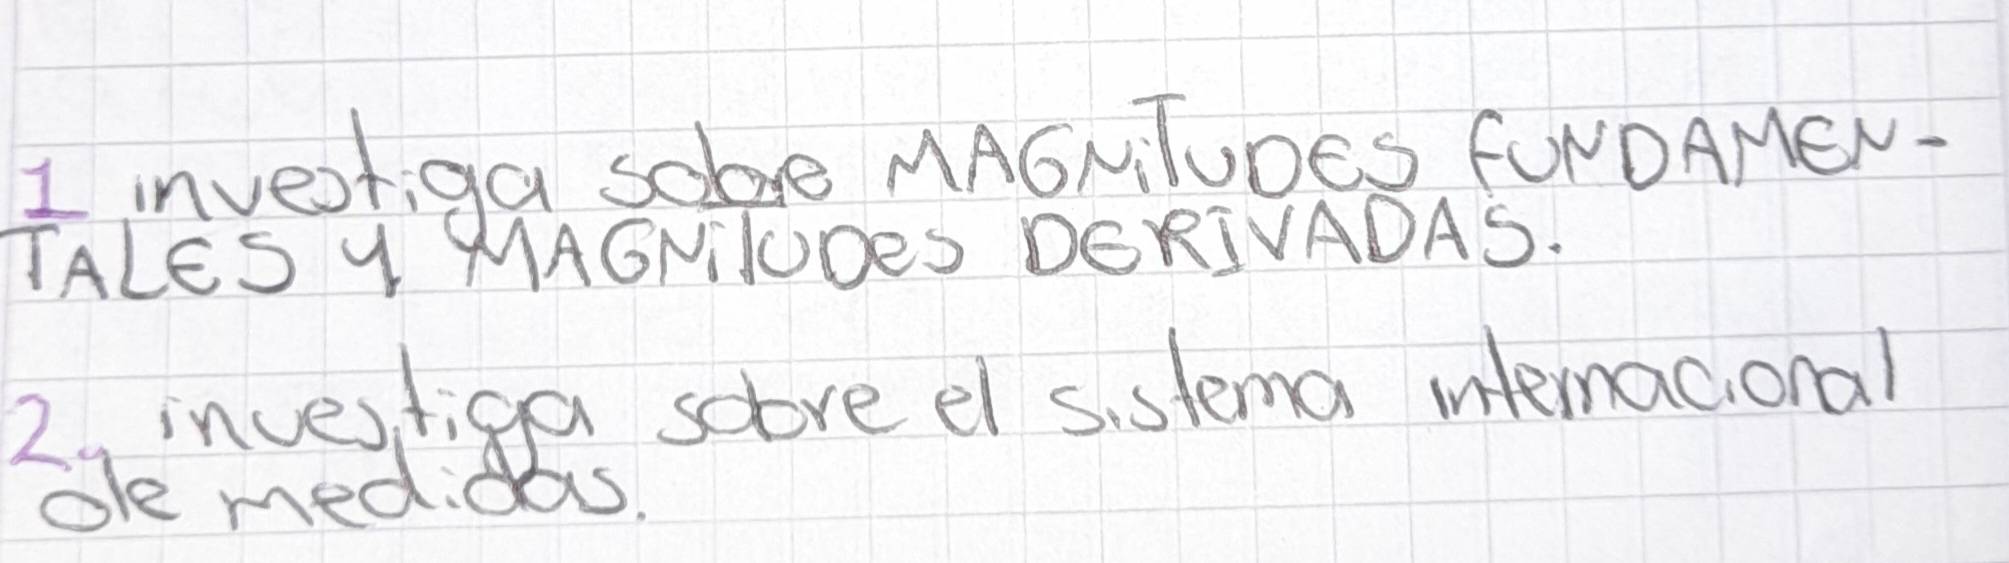 1 investiga sobre MAGNiTUDES FUNDAMEN-
TALES y MAGNiTUDES DERIVADAS.
2. investiga sobre el sistema internacional
de medidas.